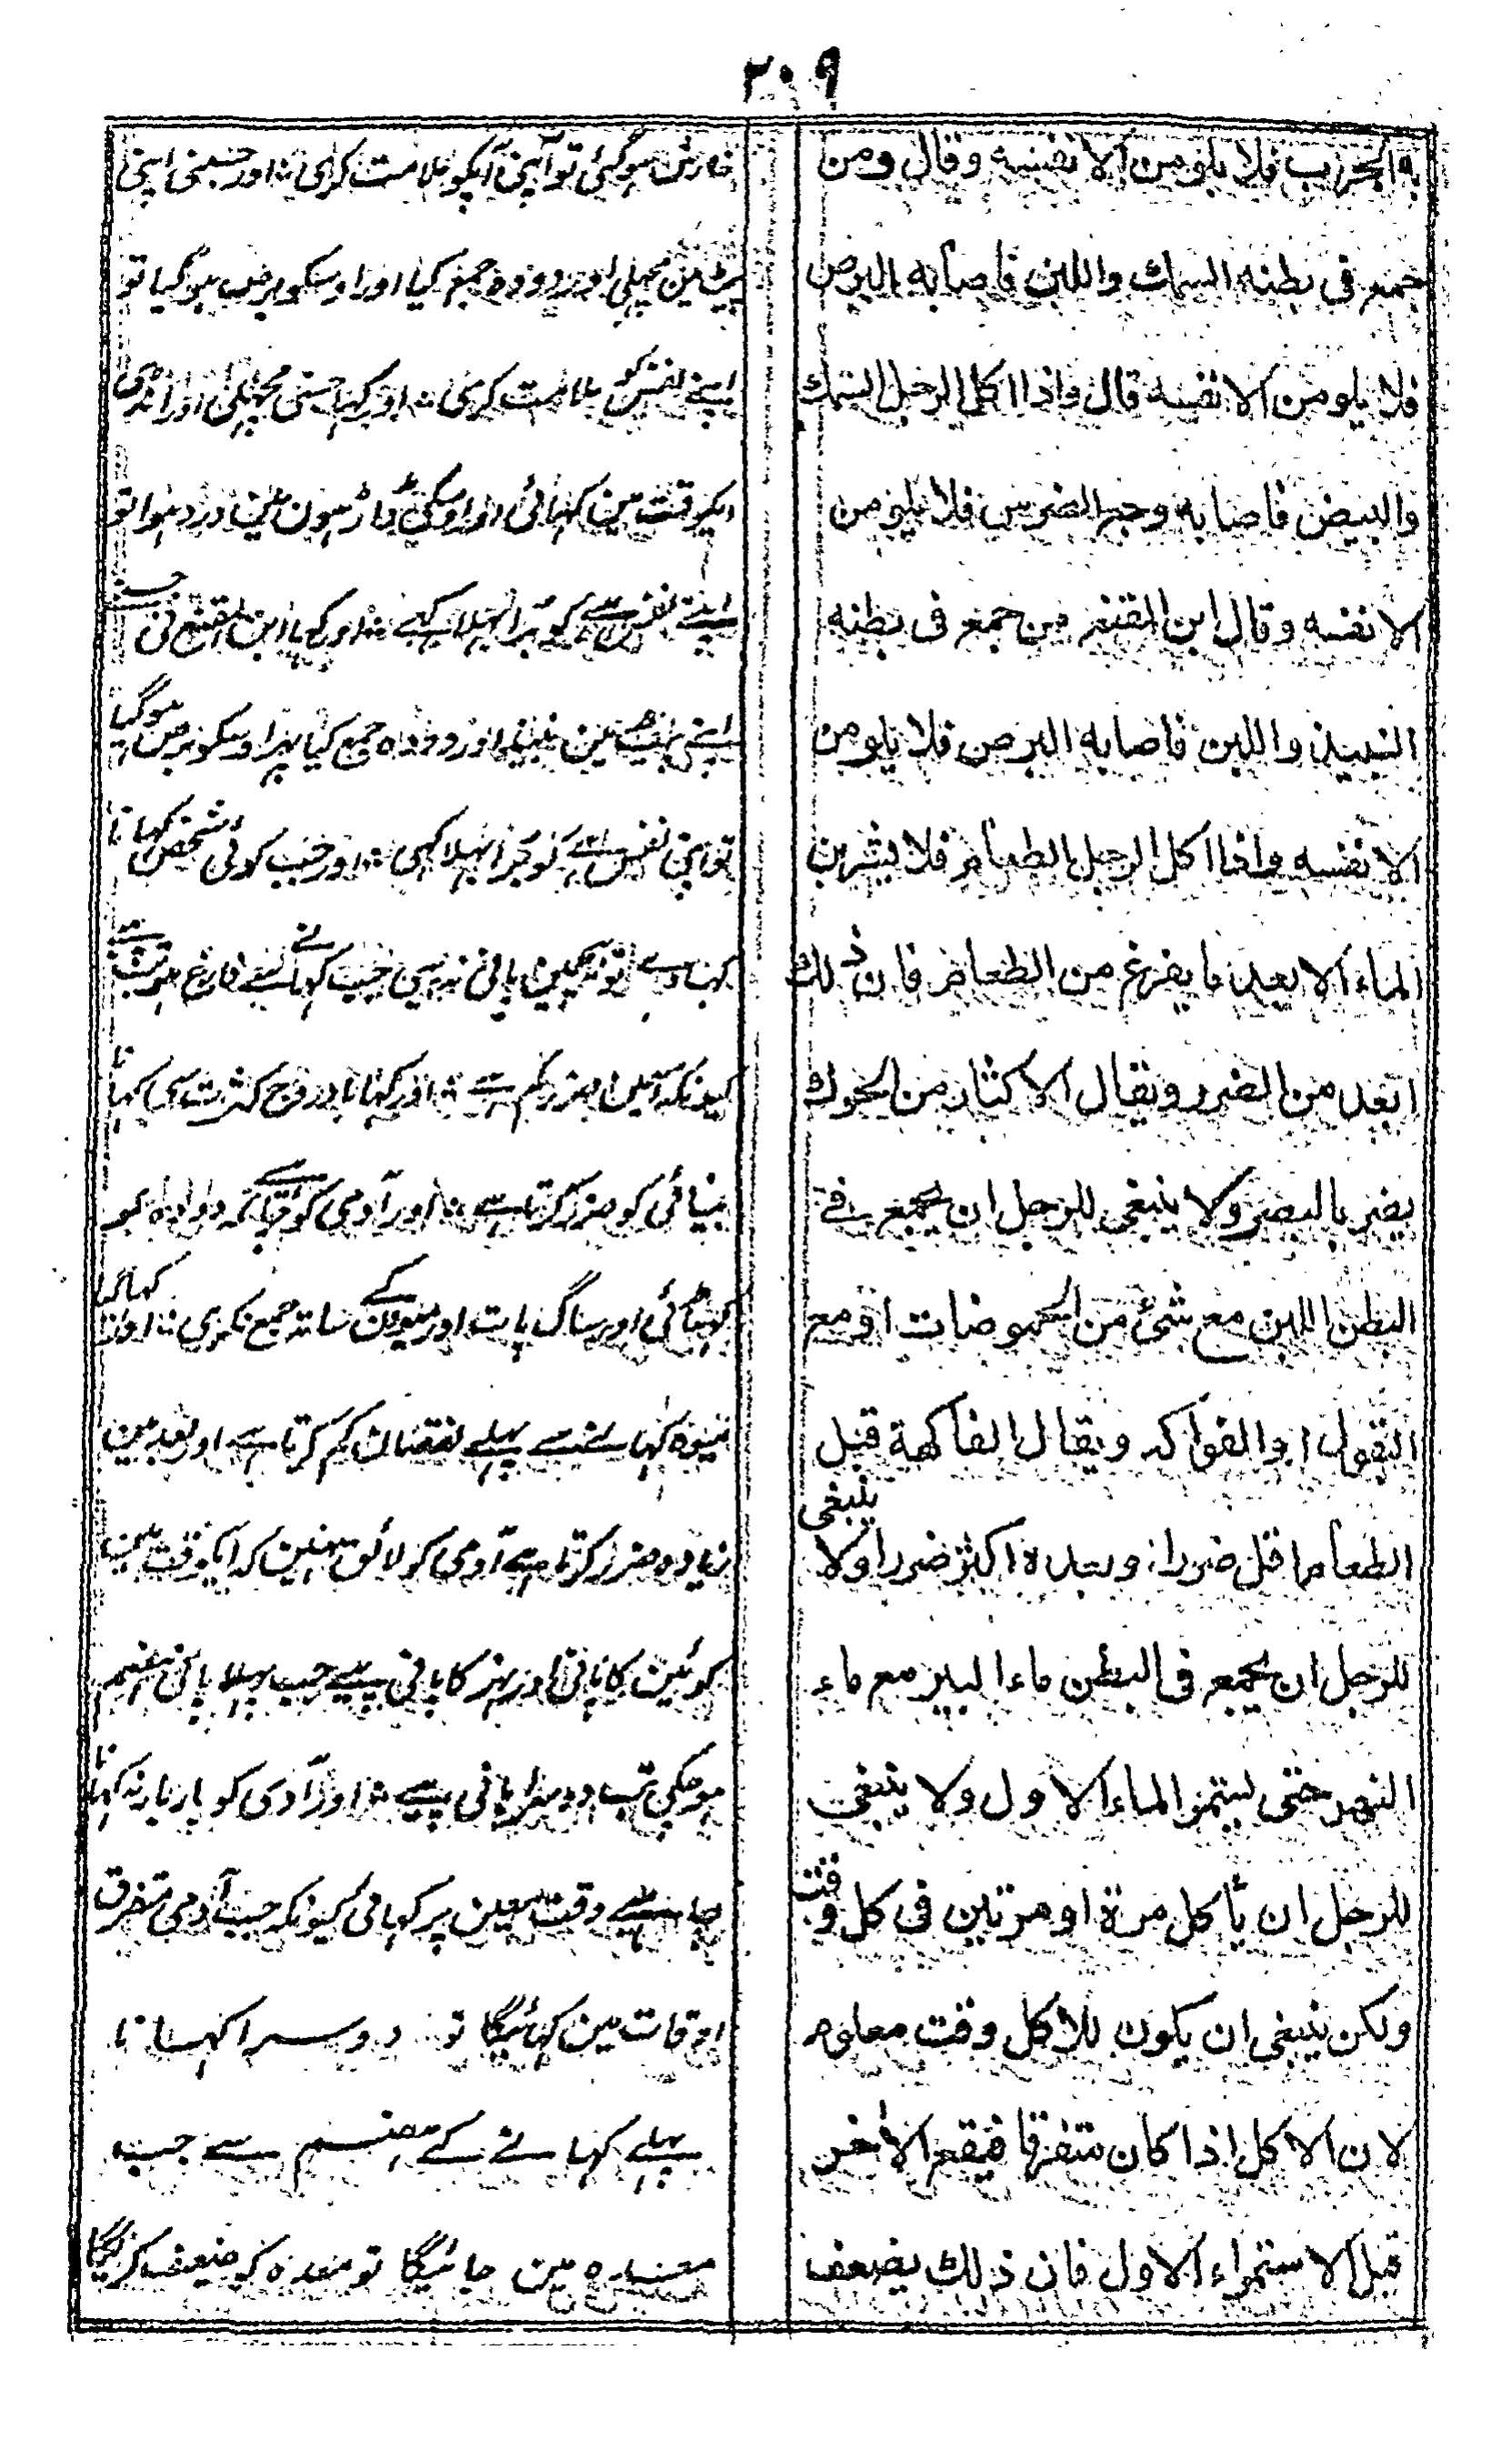 ٣٠٩
به الجرب فلا يلومن الا نفسه وقال ومن
جمع فى بطنه السمك واللبن فاصابه البرص
فلا يلومن الا نفسه قال واذا اكل الرجل السمك
والبيض فاصابه وجع الضرس فلا يلومن
الا نفسه وقال ابن المقنع من جمع فى بطنه
النبيذ واللبن فاصابه البرص فلا يلومن
الا نفسه واذا اكل الرجل الطعام فلا يشربن
الماء الا بعد ما يفرغ من الطعام فان ذلك
ابعد من الضرر ويقال الاكثار من الحوك
يضر بالبصر ولا ينبغى للرجل ان يجمع فے
البطن اللبن مع شئ من الحموضات او مع
البقول او الفواكه ويقال الفاكهة قبل
الطعام اقل ضررا وبعده اكثر ضررا ولا ينبغى
للرجل ان يجمع فى البطن ماء البير مع ماء
النهر حتى يستمر الماء الاول ولا ينبغى
للرجل ان يأكل مرة او مرتين فى كل وقت
ولكن ينبغى ان يكون للاكل وقت معلوم
لان الاكل اذا كان متفرقا فيقع الأخر
قبل الاستمراء الاول فان ذلك يضعف
خارش ہوگئی تو آپنی آپکو ملامت کرى اور جسنی اپنی
پیٹ مین مچہلی اور دودہ جمع کیا اور اوسکو برص ہو گیا تو
اپنے نفس کو ملامت کرى اور کہا جسنی مچہلی اور انڈى
ایکوقت مین کہائی اور اوسکی ڈاڑہون مین درد ہوا تو
اپنے نفس ہے کو برا بہلا کہے اور کہا ابن المقنع نی جسنے
اپنی پیٹ مین نبیذ اور دودہ جمع کیا پہر اوسکو برص ہوگیا
تو اپنی نفس ہے کو برا بہلا کہی اور جب کوئی شخص کہانا
کہاوے تو بیچمین پانی نہ پیی جب کہانے سے فارغ ہو تب پیے
کیونکہ اسمین ضرر کم ہے اور کہا بادروج کثرت سی کہانا
بینائی کو ضرر کرتا ہے اور آدمی کو چاہئے کہ دودہ کو
کہٹائی اور ساگ پات اور میوون کے ساتہ جمع نکرى اور کہا گیا
میوہ کہانے سے پہلے نقصان کم کرتا ہے اور بعد مین
زیادہ ضرر کرتا ہے آدمی کو لائق نہین کہ ایکوقت مین
کوئین کا پانی اور نہر کا پانی پیے جب پہلا پانی ہضم
ہوچکی تب دوسرا پانی پیے اور آدمی کو بار بار نہ کہانا
چاہئیے وقت معین پر کہاى کیونکہ جب آدمی متفرق
اوقات مین کہائیگا تو دوسرا کہانا
پہلے کہانے کے ہضم سے جب
معدہ مین جائیگا تو معدہ کو ضعیف کریگا